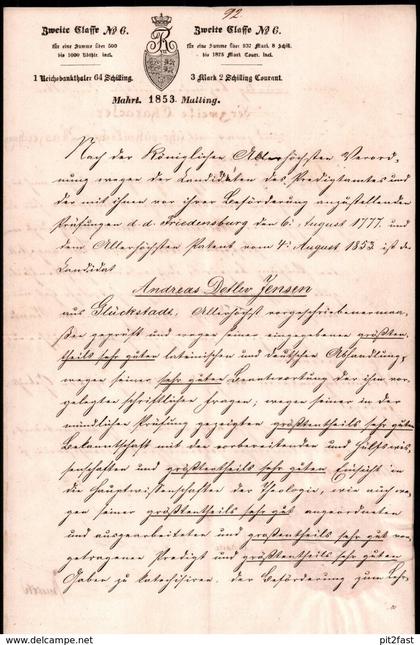 92
Zweite Classe № 6. Zweite Classe № 6.
für eine Summe über 500 für eine Summe über 937 Mark 8 Schill.
bis 1000 Rbthlr. incl. bis 1875 Mark Cour. incl.
1 Reichsbankthaler 64 Schilling. 3 Mark 2 Schilling Courant.
Mahrt. 1853. Malling.
Nach der Königlichen Allerhöchsten Verord-
nung wegen der Candidaten des Predigtamtes und
der mit ihnen vor ihrer Beförderung anzustellenden
Prüfungen d. d. Friedensburg den 6. August 1777 und
dem Allerhöchsten Patent vom 4. August 1853 ist der
Candidat
Andreas Detlev Jensen
aus Glückstadt, Allerhöchst vorgeschriebenerma-
ßen geprüft und wegen seiner eingegebenen größten-
theils sehr guten lateinischen und deutschen Abhandlung,
wegen seiner sehr guten Beantwortung der ihm vor-
gelegten schriftlichen Fragen, wegen seiner in der
mündlichen Prüfung gezeigten größtentheils sehr guten
Bekanntschaft mit den vorbereitenden und Hülfswis-
senschaften und größtentheils sehr guten Einsicht in
die Hauptwissenschaften der Theologie, wie auch we-
gen seiner größtentheils sehr gut angeordneten
und ausgearbeiteten und größtentheils sehr gut vor-
getragenen Predigt und größtentheils sehr guten
Gaben zu katechisiren, der Beförderung zum Lehr-
www.delcampe.net
pit2fast